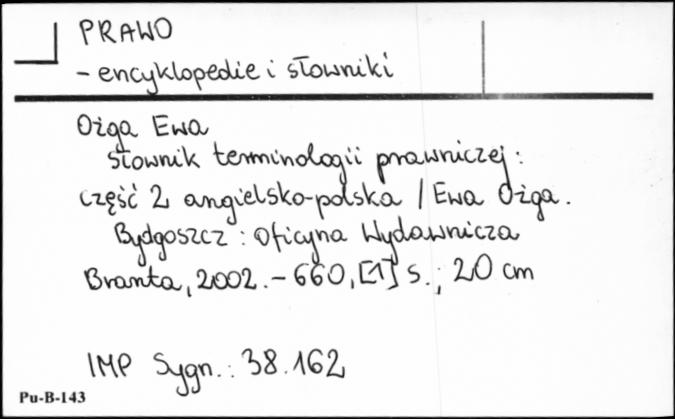 PRAWO
- encyklopedie i słowniki
Ożga Ewa
Słownik terminologii prawniczej :
część 2 angielsko-polska / Ewa Ożga.
Bydgoszcz : Oficyna Wydawnicza
Branta, 2002. - 660, [1] s. ; 20 cm
IMP Sygn. : 38.162
Pu-B-143